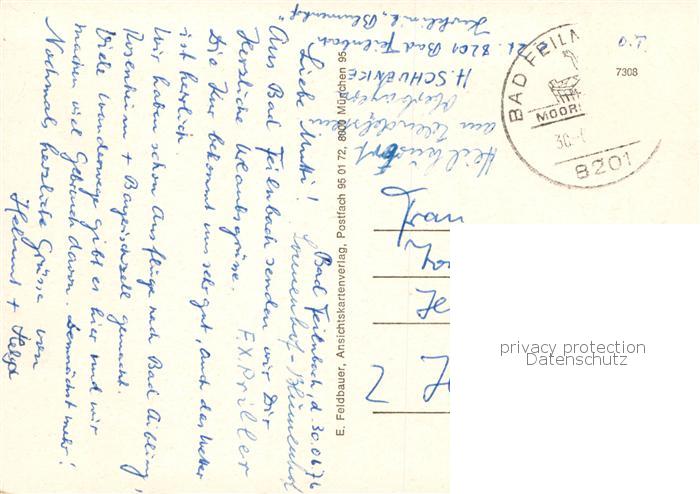 Bad Feilnbach, d. 30.06.76
Sonnenhof - Blumenhof
F. X. Priller
Liebe Mutti!
Aus Bad Feilnbach senden wir Dir
Herzliche Urlaubsgrüsse.
Die Kur bekommt uns sehr gut, auch das Wetter
ist herrlich.
Wir haben schon Ausflüge nach Bad Aibling,
Rosenheim + Bayrischzell gemacht.
Viele Wanderwege gibt es hier und wir
machen viel Gebrauch davon. Demnächst mehr!
Nochmals herzliche Grüsse von
Helmut + Helga
E. Feldbauer, Ansichtskartenverlag, Postfach 95 01 72, 8000 München 95
H. SCHWENKE
z.Zt. 8201 Bad Feilnbach
Kurklinik, Blumenhof
Heilkurort
am Wendelstein
BAD FEILN
MOOR
30.
8201
7308
privacy protection
Datenschutz